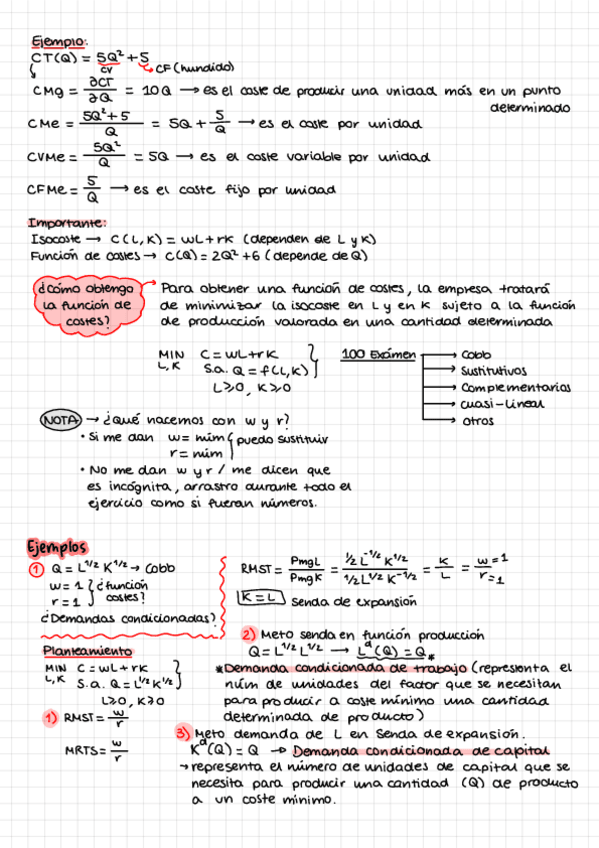 Ejemplo:
CT(Q) = 5Q² + 5
CV
CF (hundido)
CMg = ∂CT/∂Q = 10Q → es el coste de producir una unidad más en un punto
determinado
CMe = (5Q²+5)/Q = 5Q + 5/Q → es el coste por unidad
CVMe = 5Q²/Q = 5Q → es el coste variable por unidad
CFMe = 5/Q → es el coste fijo por unidad
Importante:
Isocoste → C(L,K) = wL + rK (dependen de L y K)
Función de costes → C(Q) = 2Q² + 6 (depende de Q)
¿Cómo obtengo
la función de
costes?
Para obtener una función de costes, la empresa tratará
de minimizar la isocoste en L y en K sujeto a la función
de producción valorada en una cantidad determinada
MIN C = wL + rK
L,K S.a. Q = f(L,K)
L≥0, K≥0
100 Exámen
→ Cobb
→ Sustitutivos
→ Complementarios
→ Cuasi-lineal
→ otros
NOTA → ¿Qué hacemos con w y r?
• Si me dan w = núm
r = núm
puedo sustituir
• No me dan w y r / me dicen que
es incógnita, arrastro durante todo el
ejercicio como si fueran números.
Ejemplos
1 Q = L^1/2 K^1/2 → Cobb
w = 1
r = 1
¿función
costes?
¿Demandas condicionadas?
Planteamiento
MIN C = wL + rK
L,K S.a. Q = L^1/2 K^1/2
L≥0, K≥0
1) RMST = w/r
MRTS = w/r
RMST = PmgL/PmgK = (1/2 L^-1/2 K^1/2)/(1/2 L^1/2 K^-1/2) = K/L = w=1/r=1
K = L senda de expansión
2) Meto senda en función producción
Q = L^1/2 L^1/2 → L^d(Q) = Q *
*Demanda condicionada de trabajo (representa el
núm de unidades del factor que se necesitan
para producir a coste mínimo una cantidad
determinada de producto)
3) Meto demanda de L en senda de expansión.
K^d(Q) = Q → Demanda condicionada de capital
→ representa el número de unidades de capital que se
necesita para producir una cantidad (Q) de producto
a un coste mínimo.